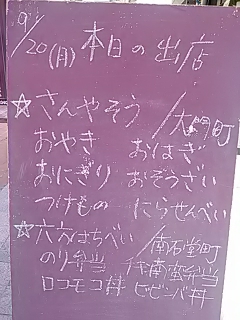 9/20(月) 本日の出店
☆さんやそう /大門町
おやき おはぎ
おにぎり おぞうざい
つけもの にらせんべい
☆六六はちべい /南石堂町
のり弁当 チキン南蛮弁当
ロコモコ丼 ビビンバ丼